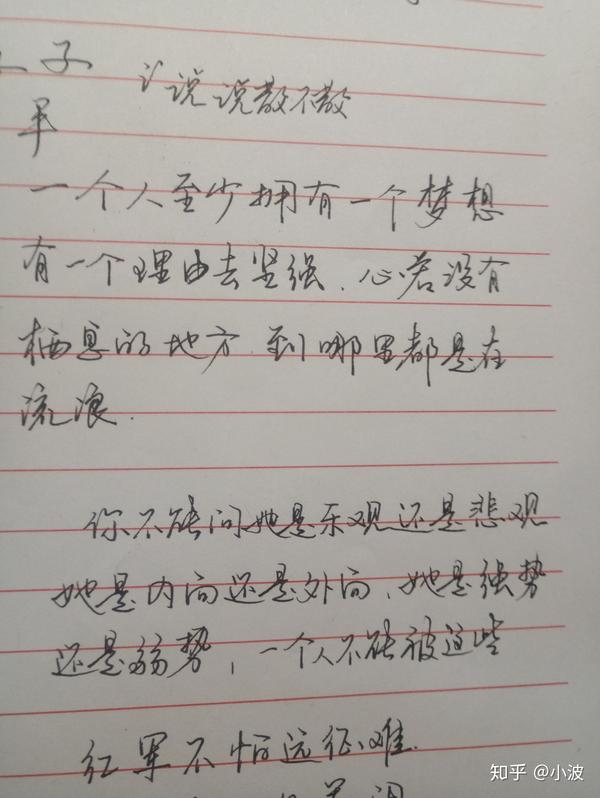 子 讠说说散不散
平
一个人至少拥有一个梦想
有一个理由去坚强.心若没有
栖息的地方.到哪里都是在
流浪.
你不能问她是乐观还是悲观
她是内向还是外向,她是强势
还是弱势,一个人不能被这些
红军不怕远征难.
知乎 @小波